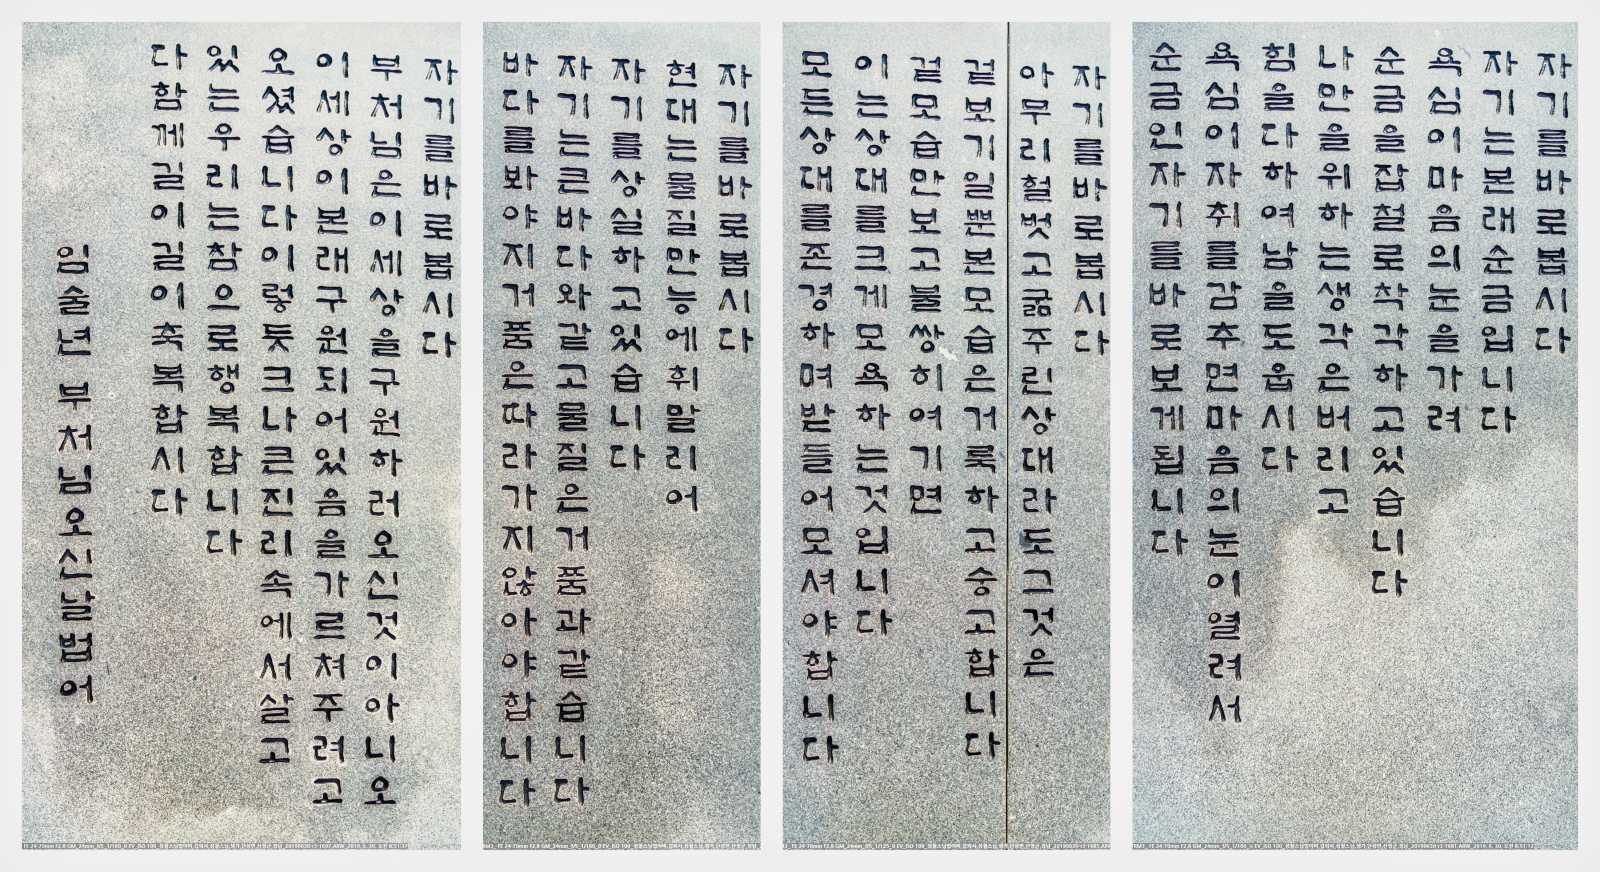 자기를바로봅시다
자기는본래순금입니다
욕심이마음의눈을가려
순금을잡철로착각하고있습니다
나만을위하는생각은버리고
힘을다하여남을도웁시다
욕심이자취를감추면마음의눈이열려서
순금인자기를바로보게됩니다
자기를바로봅시다
아무리헐벗고굶주린상대라도그것은
겉보기일뿐본모습은거룩하고숭고합니다
겉모습만보고불쌍히여기면
이는상대를크게모욕하는것입니다
모든상대를존경하며받들어모셔야합니다
자기를바로봅시다
현대는물질만능에휘말리어
자기를상실하고있습니다
자기는큰바다와같고물질은거품과같습니다
바다를봐야지거품은따라가지않아야합니다
자기를바로봅시다
부처님은이세상을구원하러오신것이아니오
이세상이본래구원되어있음을가르쳐주려고
오셨습니다이렇듯크나큰진리속에서살고
있는우리는참으로행복합니다
다함께길이길이축복합시다
임술년 부처님오신날법어